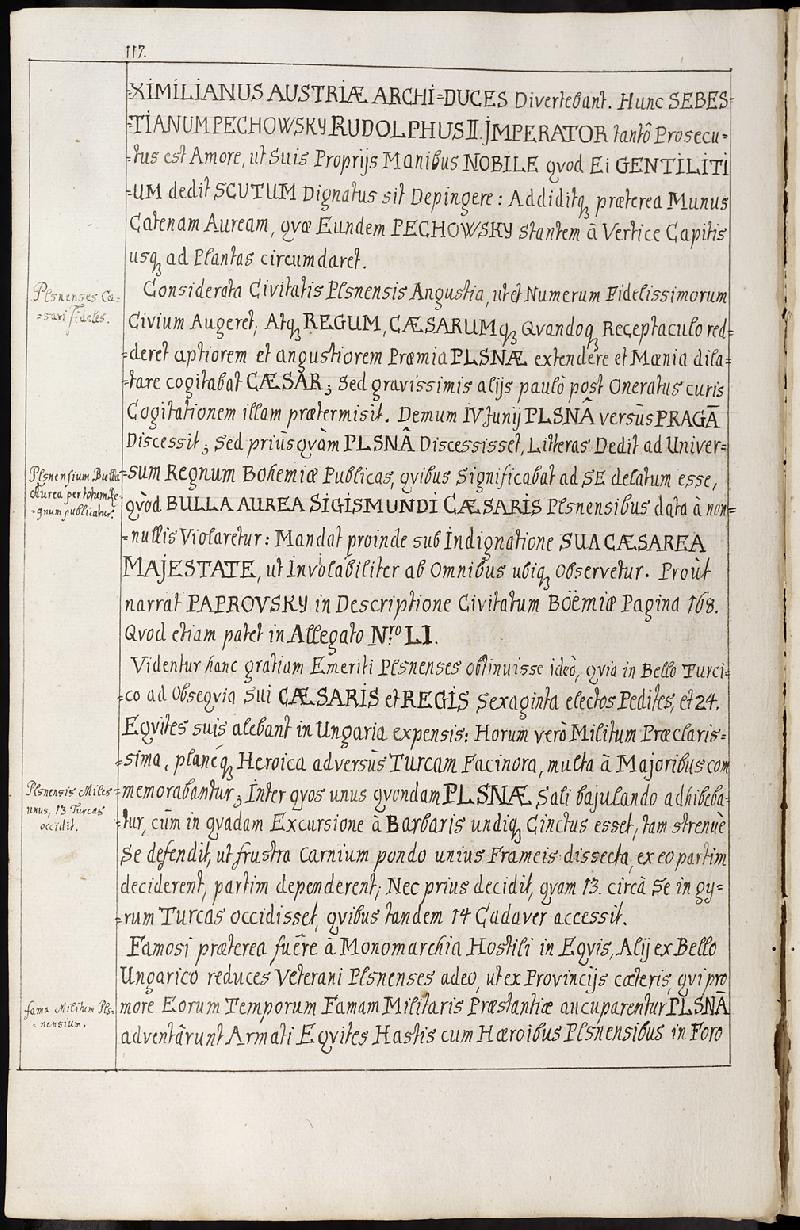 117.
-XIMILIANUS AUSTRIÆ ARCHI=DUCES Divertebant. Hunc SEBES=
-TIANUM PECHOWSKY RUDOLPHUS II. JMPERATOR tantô Prosecu-
-tus est Amore, ut Suis Proprijs Manibus NOBILE qvod Ei GENTILITI
-UM dedit SCUTUM Dignatus sit Depingere: Addiditq, præterea Munus
Catenam Auream, qvæ Eundem PECHOWSKY stantem â Vertice Capitis
usq, ad Plantas circumdaret.
Plsnenses Cæ-
=sari fideles.
Considerata Civitatis Plsnensis Angustia, ut et Numerum Fidelissimorum
Civium Augeret, Atq, REGUM, CÆSARUMq, Qvandoq, Receptaculo red=
=deret aptiorem et angustiorem Præmia PLSNÆ extendere et Mœnia dila=
-tare cogitabat CÆSAR; Sed gravissimis alijs paulò post Oneratus curis
Cogitationem illam prætermisit. Demum IV Junij PLSNÂ versùs PRAGÃ
Discessit; Sed priùs qvàm PLSNÂ Discessisset, Litteras Dedit ad Univer=
Plsnensium Bulla
Aurea per totum Re-
-gnum publicatur.
-sum Regnum Bohemiæ Publicas, qvibus Significabat ad SE delatum esse,
qvòd BULLA AUREA SIGISMUNDI CÆSARIS Plsnensibus data à non=
=nullis Violaretur: Mandat proinde sub Indignatione SUA CÆSAREA
MAJESTATE, ut Inviolabiliter ab Omnibus ubiq, Observetur. Proùt
narrat PAPROVSKY in Descriptione Civitatum Böemiæ Pagina 168.
Qvod etiam patet in Allegato Nrº LI.
Videntur hanc gratiam Emeriti Plsnenses obtinuisse ideò, qvia in Bello Turci-
-co ad Obseqvia Sui CÆSARIS et REGIS Sexaginta electos Pedites, et 24.
Eqvites suis alebant in Ungaria expensis: Horum verò Militum Præclaris=
-sima, planeq, Heroica adversùs Turcam Facinora, multa à Majoribus com
Plsnensis Miles
unus, 13 Turcas
occidit.
=memorabantur; Inter qvos unus qvondam PLSNÆ, Sali bajulando adhibeba-
-tur, cùm in qvadam Excursione à Barbaris undiq, Cinctus esset, tam strenuè
Se defendit, ut frustra Carnium pondo unius Frameis dissecta, ex eo partim
deciderent, partim dependerent; Nec prius decidit, qvam 13. circâ Se in gy=
-rum Turcas occidisset, qvibus tandem 14 Cadaver accessit.
Famosi præterea fuêre à Monomarchia Hostili in Eqvis, Alij ex Bello
Ungarico reduces Veterani Plsnenses adeo, ut ex Provincijs cæteris, qvi pro
fama Militum Pls-
-nensium.
more Eorum Temporum Famam Militaris Præstantiæ aucuparentur PLSNÂ
adventârunt Armati Eqvites Hastis cum Hæroibus Plsnensibus in Foro